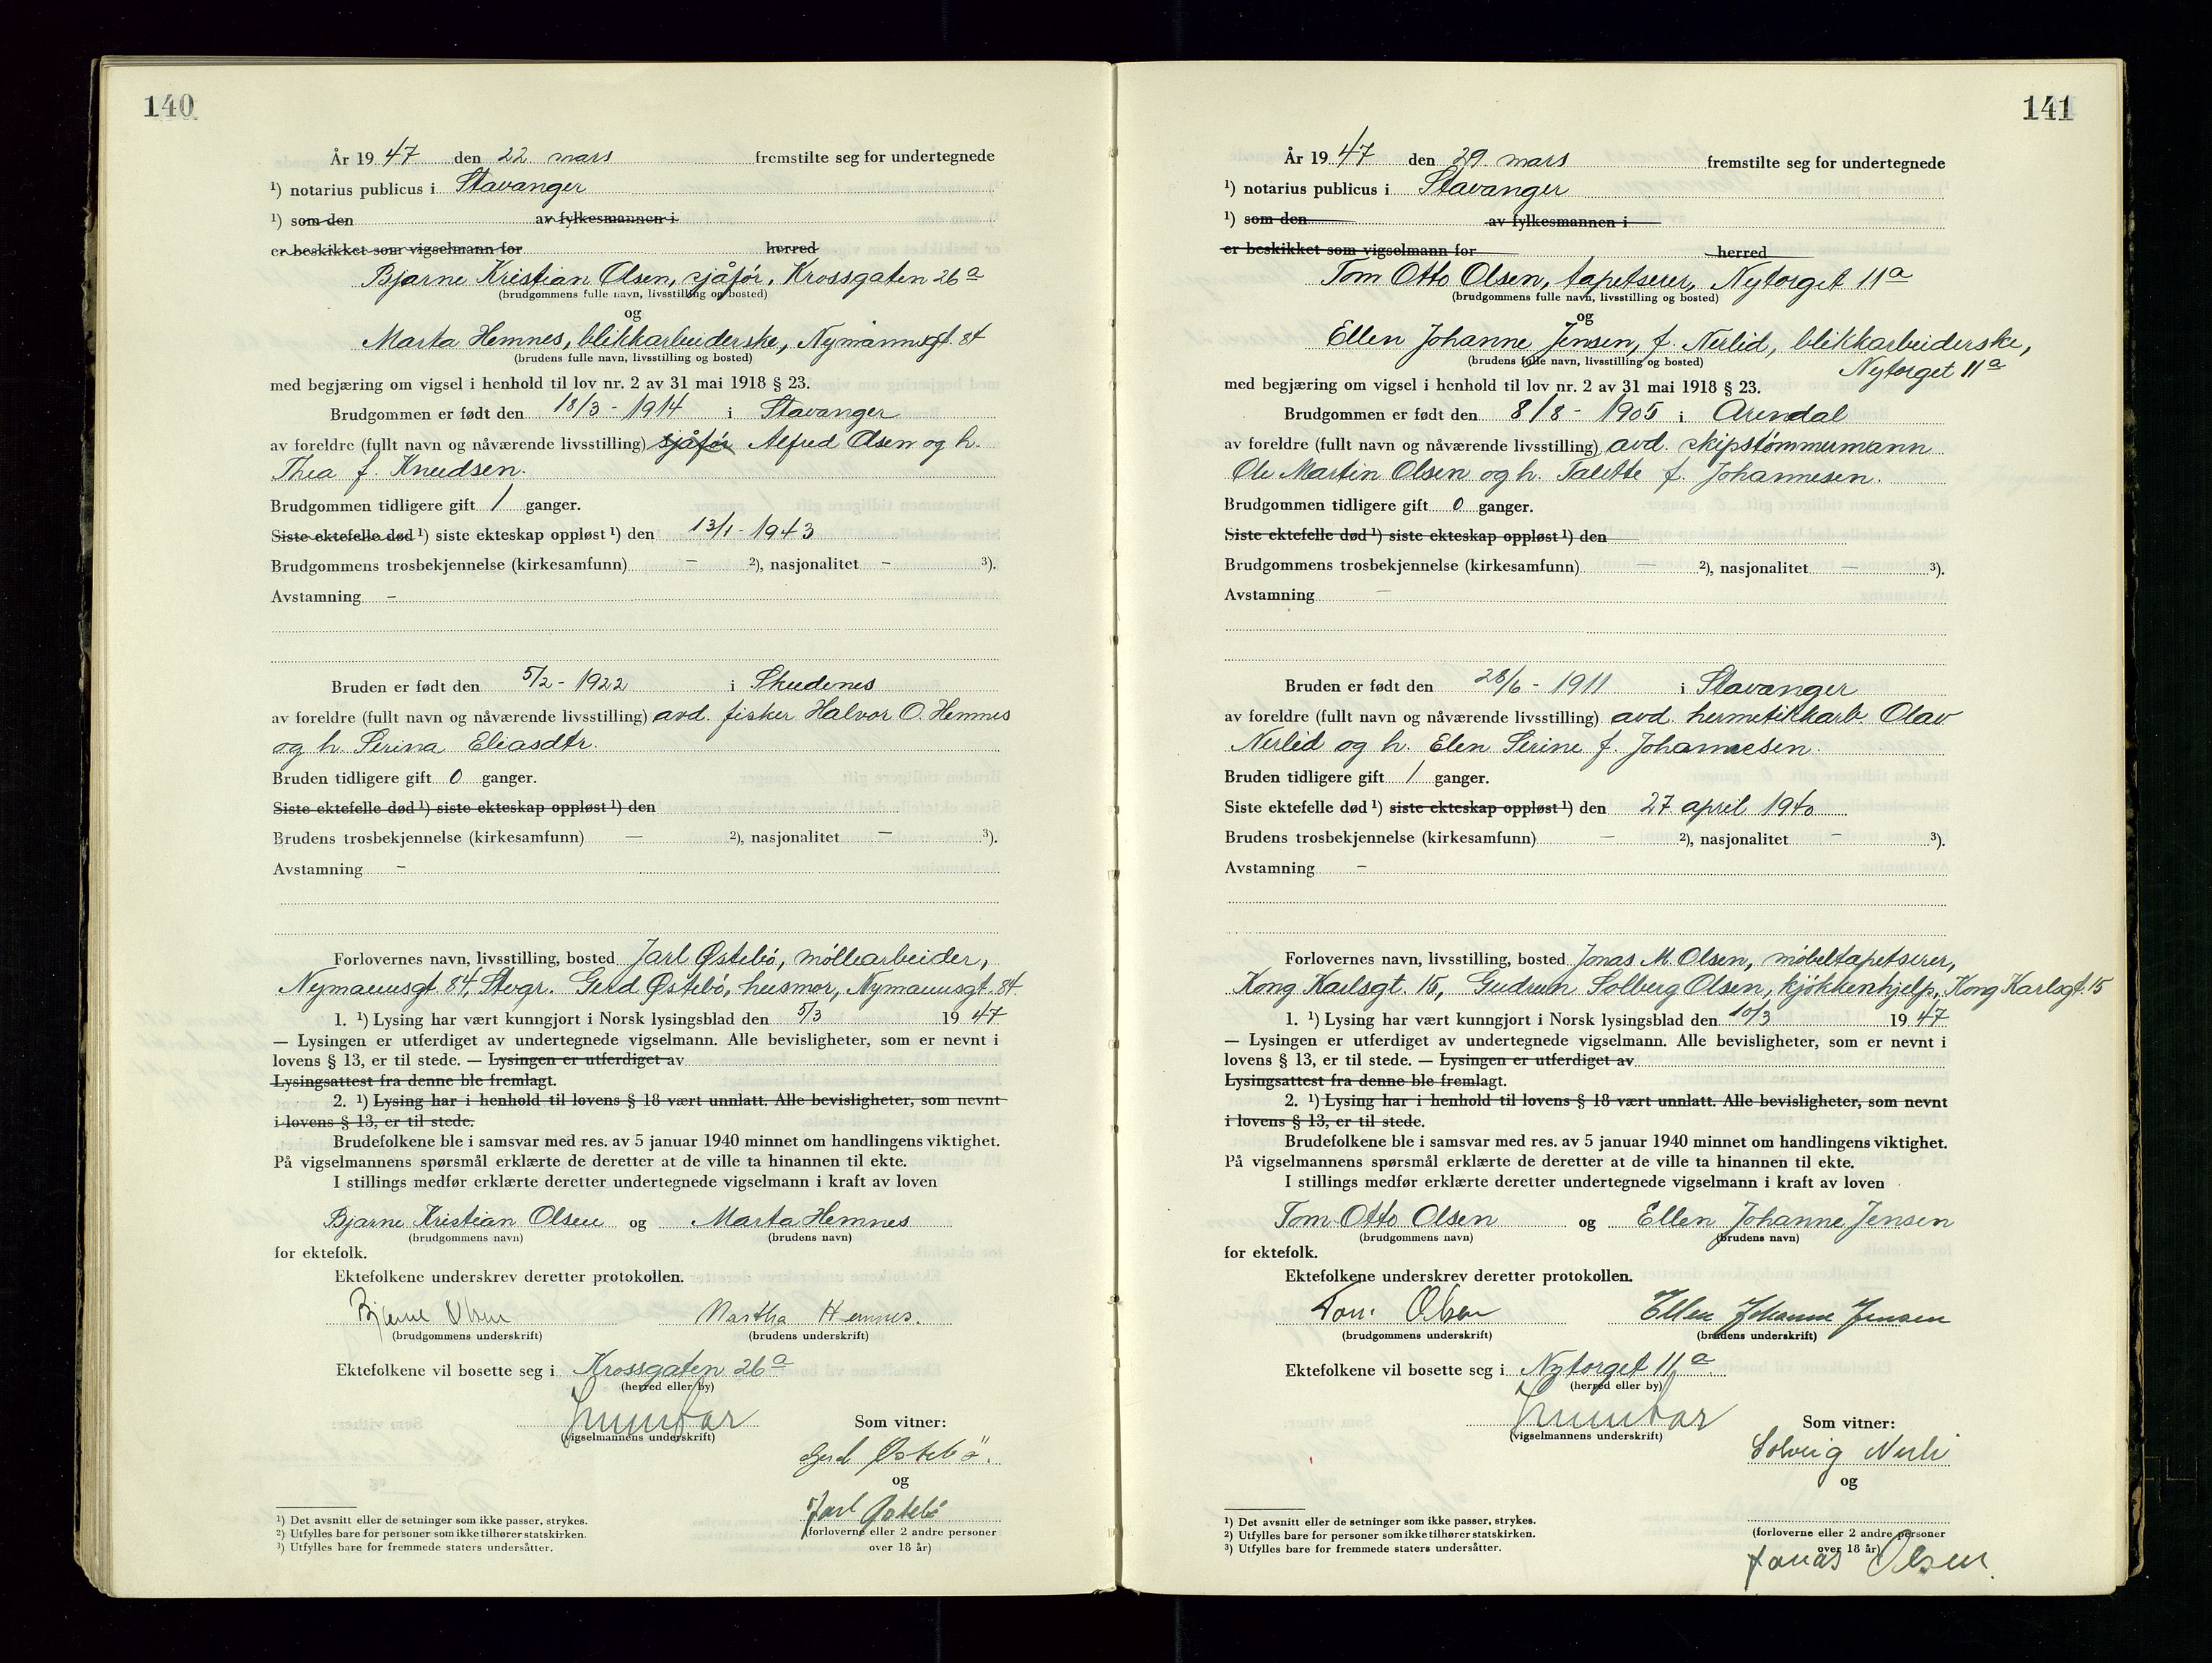 140
År 1947 den 22. mars fremstilte seg for undertegnede
¹) notarius publicus i Stavanger
¹) som den av fylkesmannen i
er beskikket som vigselmann for herred
Bjarne Kristian Olsen, sjåfør, Krossgaten 26a
(brudgommens fulle navn, livsstilling og bosted)
og
Marta Hemnes, blikkarbeiderske, Nymannsgt. 84
(brudens fulle navn, livsstilling og bosted)
med begjæring om vigsel i henhold til lov nr. 2 av 31 mai 1918 § 23.
Brudgommen er født den 18/3 - 1914 i Stavanger
av foreldre (fullt navn og nåværende livsstilling) sjåfør Alfred Olsen og h.
Thea f. Knudsen.
Brudgommen tidligere gift 1 ganger.
Siste ektefelle død ¹) siste ekteskap oppløst ¹) den 13/1 - 1943
Brudgommens trosbekjennelse (kirkesamfunn) — ²), nasjonalitet — ³).
Avstamning —
Bruden er født den 5/2 - 1922 i Skudenes
av foreldre (fullt navn og nåværende livsstilling) avd. fisker Halvor O. Hemnes
og h. Serina Eliasdtr.
Bruden tidligere gift 0 ganger.
Siste ektefelle død ¹) siste ekteskap oppløst ¹) den
Brudens trosbekjennelse (kirkesamfunn) — ²), nasjonalitet — ³).
Avstamning —
Forlovernes navn, livsstilling, bosted Jarl Østebø, møllearbeider,
Nymannsgt. 84, Stvgr. Gerd Østebø, husmor, Nymannsgt. 84.
1. ¹) Lysing har vært kunngjort i Norsk lysingsblad den 5/3 1947
— Lysingen er utferdiget av undertegnede vigselmann. Alle bevisligheter, som er nevnt i
lovens § 13, er til stede. — Lysingen er utferdiget av
Lysingsattest fra denne ble fremlagt.
2. ¹) Lysing har i henhold til lovens § 18 vært unnlatt. Alle bevisligheter, som nevnt
i lovens § 13, er til stede.
Brudefolkene ble i samsvar med res. av 5 januar 1940 minnet om handlingens viktighet.
På vigselmannens spørsmål erklærte de deretter at de ville ta hinannen til ekte.
I stillings medfør erklærte deretter undertegnede vigselmann i kraft av loven
Bjarne Kristian Olsen og Marta Hemnes
(brudgommens navn) (brudens navn)
for ektefolk.
Ektefolkene underskrev deretter protokollen.
Bjarne Olsen Martha Hemnes.
(brudgommens underskrift) (brudens underskrift)
Ektefolkene vil bosette seg i Krossgaten 26a
(herred eller by)
Som vitner:
(vigselmannens underskrift)
Gerd Østebö.
og
Jarl Østebø
(forloverne eller 2 andre personer
over 18 år)
¹) Det avsnitt eller de setninger som ikke passer, strykes.
²) Utfylles bare for personer som ikke tilhører statskirken.
³) Utfylles bare for fremmede staters undersåtter.
141
År 1947 den 29. mars fremstilte seg for undertegnede
¹) notarius publicus i Stavanger
¹) som den av fylkesmannen i
er beskikket som vigselmann for herred
Tom Otto Olsen, tapetserer, Nytorget 11a
(brudgommens fulle navn, livsstilling og bosted)
og
Ellen Johanne Jensen, f. Nerlid, blikkarbeiderske,
(brudens fulle navn, livsstilling og bosted) Nytorget 11a
med begjæring om vigsel i henhold til lov nr. 2 av 31 mai 1918 § 23.
Brudgommen er født den 8/8 - 1905 i Arendal
av foreldre (fullt navn og nåværende livsstilling) avd. skipstømmermann
Ole Martin Olsen og h. Talette f. Johannesen.
Brudgommen tidligere gift 0 ganger.
Siste ektefelle død ¹) siste ekteskap oppløst ¹) den
Brudgommens trosbekjennelse (kirkesamfunn) — ²), nasjonalitet — ³).
Avstamning —
Bruden er født den 28/6 - 1911 i Stavanger
av foreldre (fullt navn og nåværende livsstilling) avd. hermetikkarb. Olav
Nerlid og h. Elen Serine f. Johannesen.
Bruden tidligere gift 1 ganger.
Siste ektefelle død ¹) siste ekteskap oppløst ¹) den 27. april 1940
Brudens trosbekjennelse (kirkesamfunn) — ²), nasjonalitet — ³).
Avstamning —
Forlovernes navn, livsstilling, bosted Jonas M. Olsen, møbeltapetserer,
Kong Karlsgt. 15, Gudrun Solberg Olsen, kjøkkenhjelp, Kong Karlsgt. 15
1. ¹) Lysing har vært kunngjort i Norsk lysingsblad den 10/3 1947
— Lysingen er utferdiget av undertegnede vigselmann. Alle bevisligheter, som er nevnt i
lovens § 13, er til stede. — Lysingen er utferdiget av
Lysingsattest fra denne ble fremlagt.
2. ¹) Lysing har i henhold til lovens § 18 vært unnlatt. Alle bevisligheter, som nevnt
i lovens § 13, er til stede.
Brudefolkene ble i samsvar med res. av 5 januar 1940 minnet om handlingens viktighet.
På vigselmannens spørsmål erklærte de deretter at de ville ta hinannen til ekte.
I stillings medfør erklærte deretter undertegnede vigselmann i kraft av loven
Tom Otto Olsen og Ellen Johanne Jensen
(brudgommens navn) (brudens navn)
for ektefolk.
Ektefolkene underskrev deretter protokollen.
Tom Olsen Ellen Johanne Jensen
(brudgommens underskrift) (brudens underskrift)
Ektefolkene vil bosette seg i Nytorget 11a
(herred eller by)
Som vitner:
(vigselmannens underskrift)
Solveig Nerli
og
(forloverne eller 2 andre personer
over 18 år)
Jonas Olsen.
¹) Det avsnitt eller de setninger som ikke passer, strykes.
²) Utfylles bare for personer som ikke tilhører statskirken.
³) Utfylles bare for fremmede staters undersåtter.